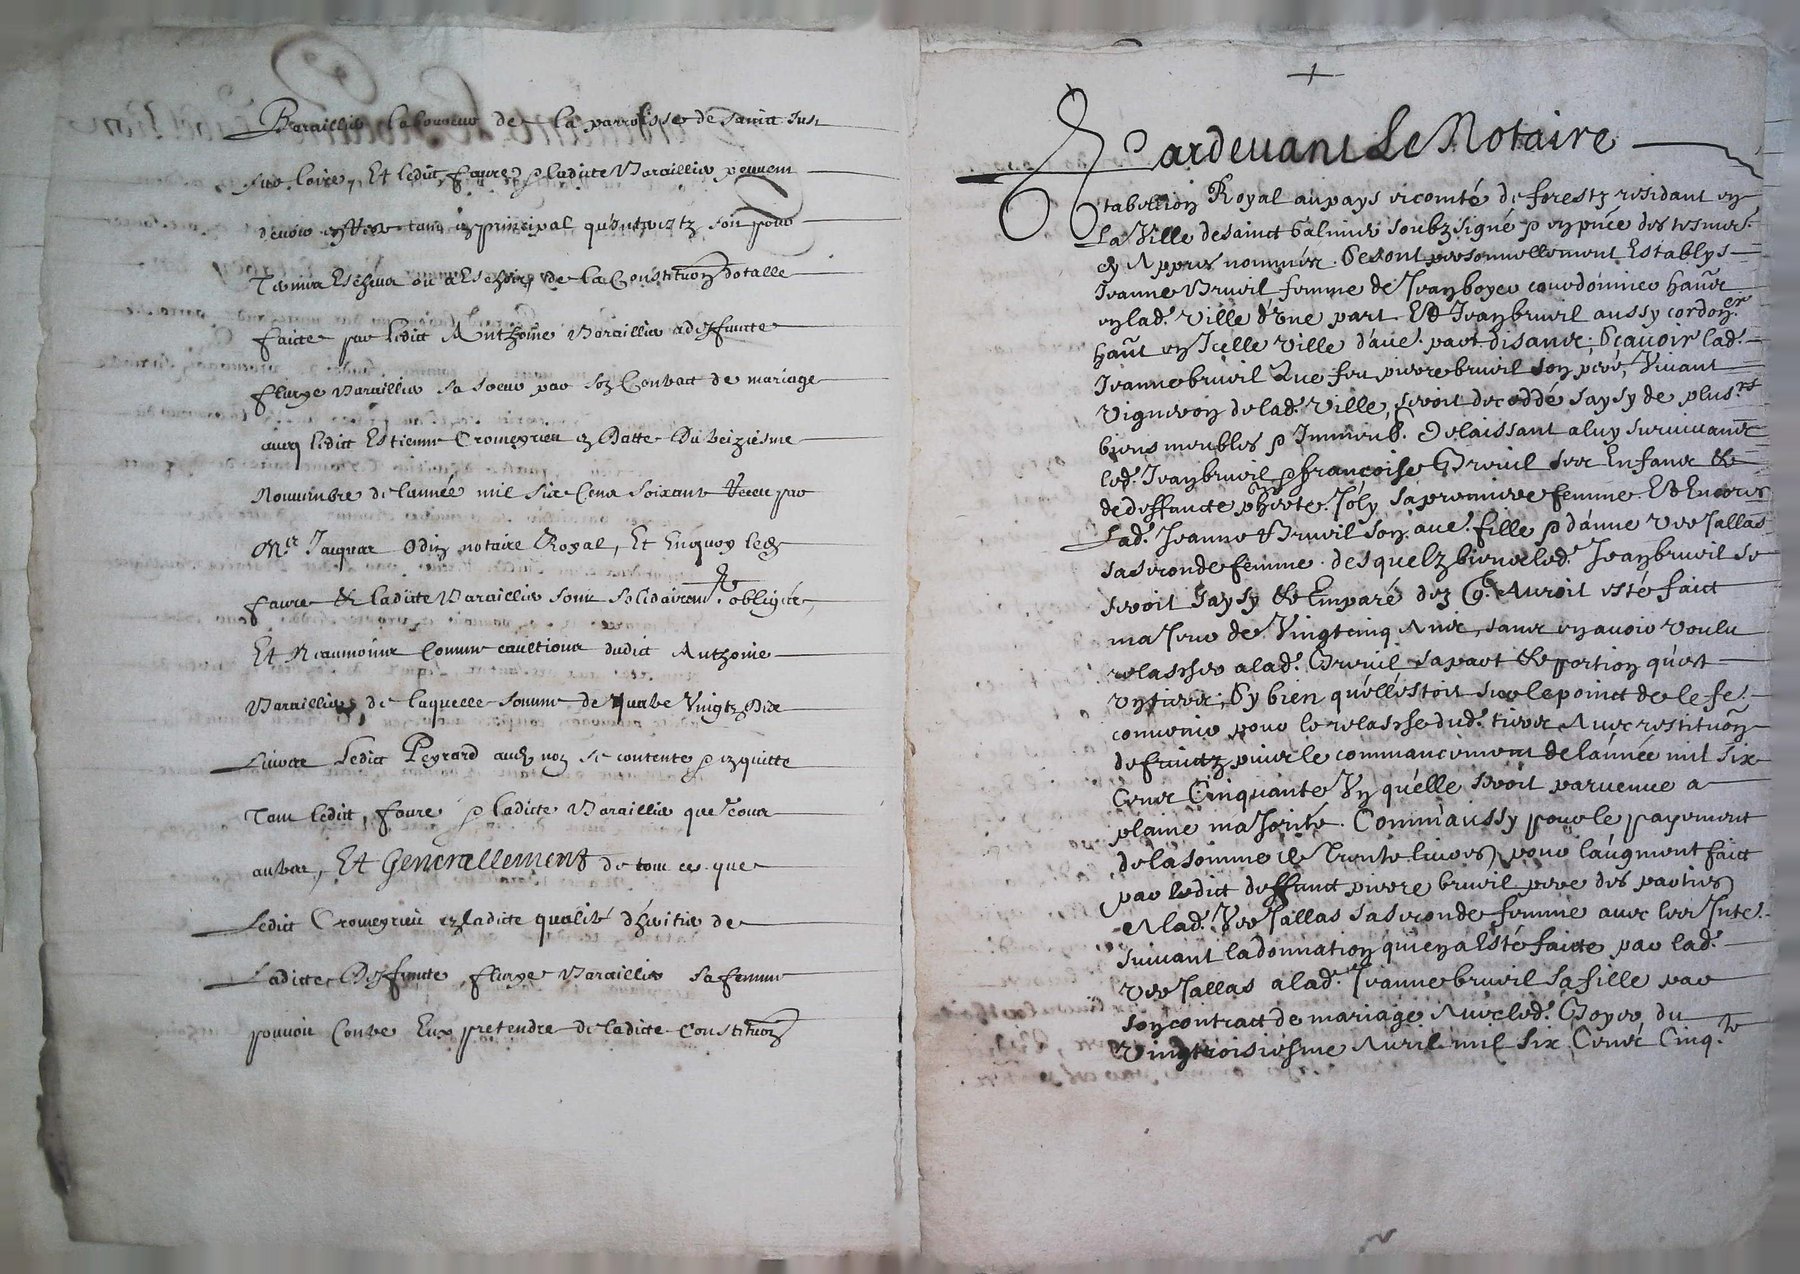 Baraillier laboureur de la parroisse de sainct Just
sur loire, Et ledict faure & ladicte Baraillier peuvent
debvoir tant en principal qu'interestz soit pour
Terme Escheux ou a Eschoir de la Constitution dotalle
faicte par ledict Anthoine Baraillier a deffuncte
fleurye Baraillier sa soeur par son Contract de mariage
avec ledict Estienne Cromeyrieu en Datte Du treiziesme
Novembre de l'année mil six Cens soixante Receu par
Mre Jacques Odin notaire Royal, Et Enquoy lesd
faure & ladicte Baraillier sont solidairemt obligés,
Et Neaumoins Comme caultions dudict Anthoine
Baraillier, de laquelle somme de quatre Vingtz Dix
Livres Ledict Peyrard aud nom se contente & en quitte
Tant ledict, faure & ladicte Baraillier que tous
autres, Et Generallement de tout ce que
Ledict Cromeyrieu en ladicte qualité d'heritier de
Ladicte Deffuncte fleurye Baraillier sa femme
pouvoit Contre Eux pretendre de ladicte Constitution
+
Pardevant Le Notaire
tabellion Royal au pays & comté de forestz residant en
La Ville de sainct Galmier soubz signé & en pnce des tesmoins
cy Appres nommés. Se sont personnellement Establys
Jeanne Brueil femme de Jean boyer courdonnier hant
en lad. Ville d'une part Et Jean brueil aussy cordoner
hant en Icelle Ville d'aue. part. disants. Scavoir lad.
Jeanne brueil Que feu pierre brueil son père, Vivant
Vigneron de lad. Ville, seroit decoddé saysy de plusrs
biens meubles & Immeub. Delaissant a luy survivants
led. Jean brueil & francoise Breuil ses Enfans &
de deffuncte Joly sa premiere femme Et Encores
Lad. Jeanne Brueil son aue. fille & d'anne Vertallas
sa seconde femme. desquelz biens led. Jean brueil se
seroit saysy & Emparé dez qu. Auroit esté faict
majeur de Vingtcinq Ans, sans en avoir voulu
relascher a lad. Breuil sa part & portion qu'est
Un tiers, Sy bien qu'elle estoit sur le poinct de le fe.
convenir pour le relasche dud. tiers Avec restituon
de fruictz puis le commancement de l'année mil six
Cens Cinquante Un qu'elle seroit parvenue a
plaine majorité. Comm'aussy pour le payement
de la somme de Trente livres, pour l'augment faict
par ledict deffunct pierre brueil pere des parties
A lad. Vertallas sa seconde femme avec les Inte.
suivant la donnation qui en a Esté faicte par lad.
Vertallas a lad. Jeanne brueil sa fille par
son contract de mariage Avec led. Boyer du
Vingtroisiesme Avril mil six Cens Cinq.te